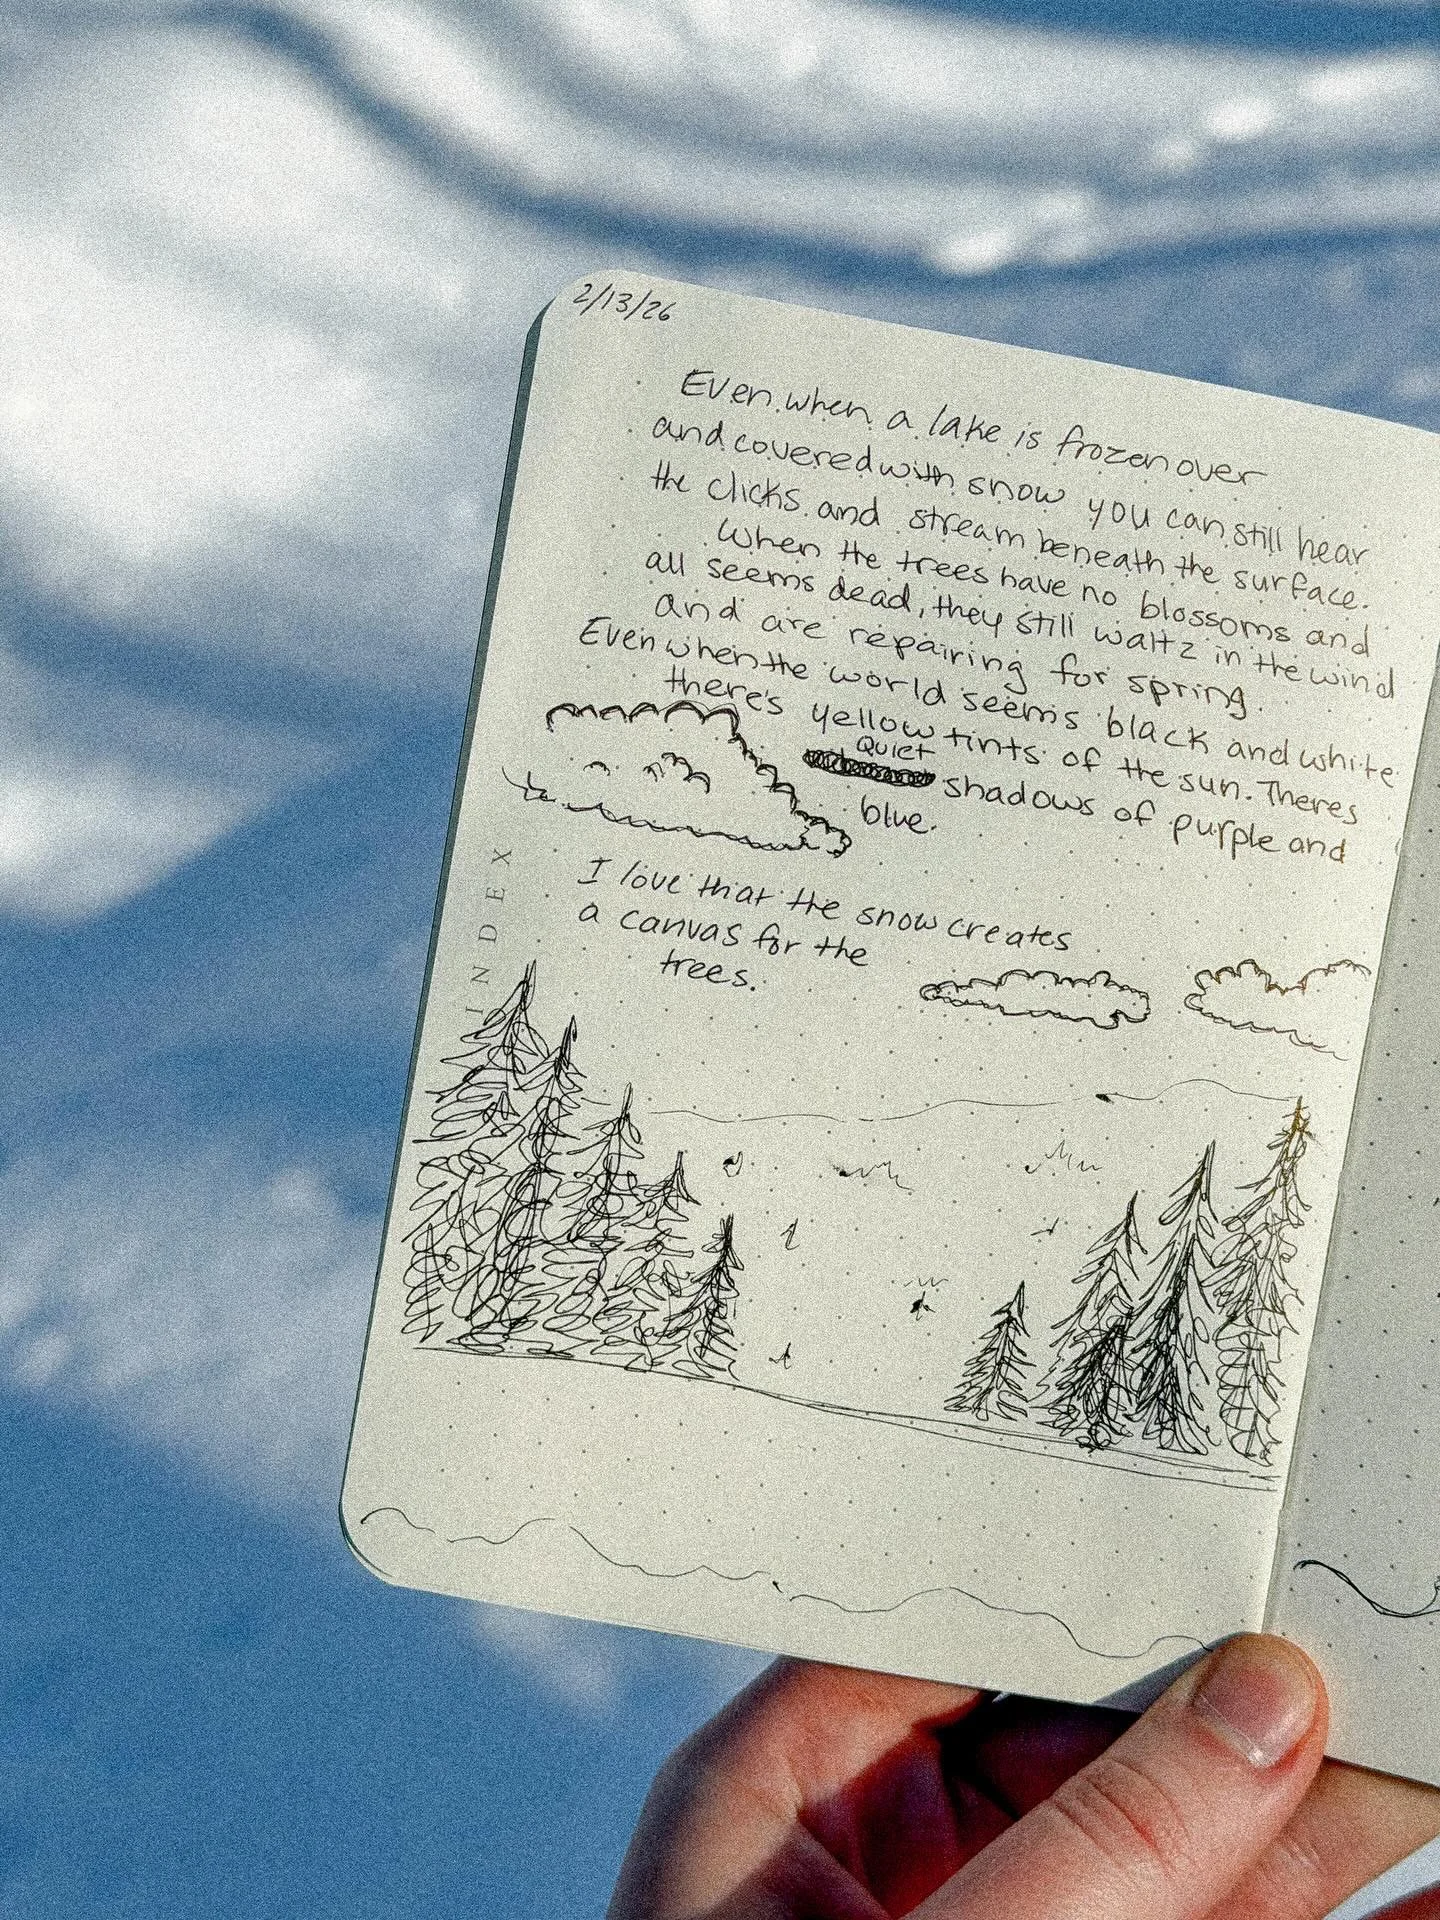 2/13/26
Even when a lake is frozen over
and covered with snow you can still hear
the clicks and stream beneath the surface.
When the trees have no blossoms and
all seems dead, they still waltz in the wind
and are repairing for spring.
Even when the world seems black and white
there's yellow tints of the sun. Theres
Quiet
shadows of purple and
blue.
I love that the snow creates
a canvas for the
trees.
INDEX